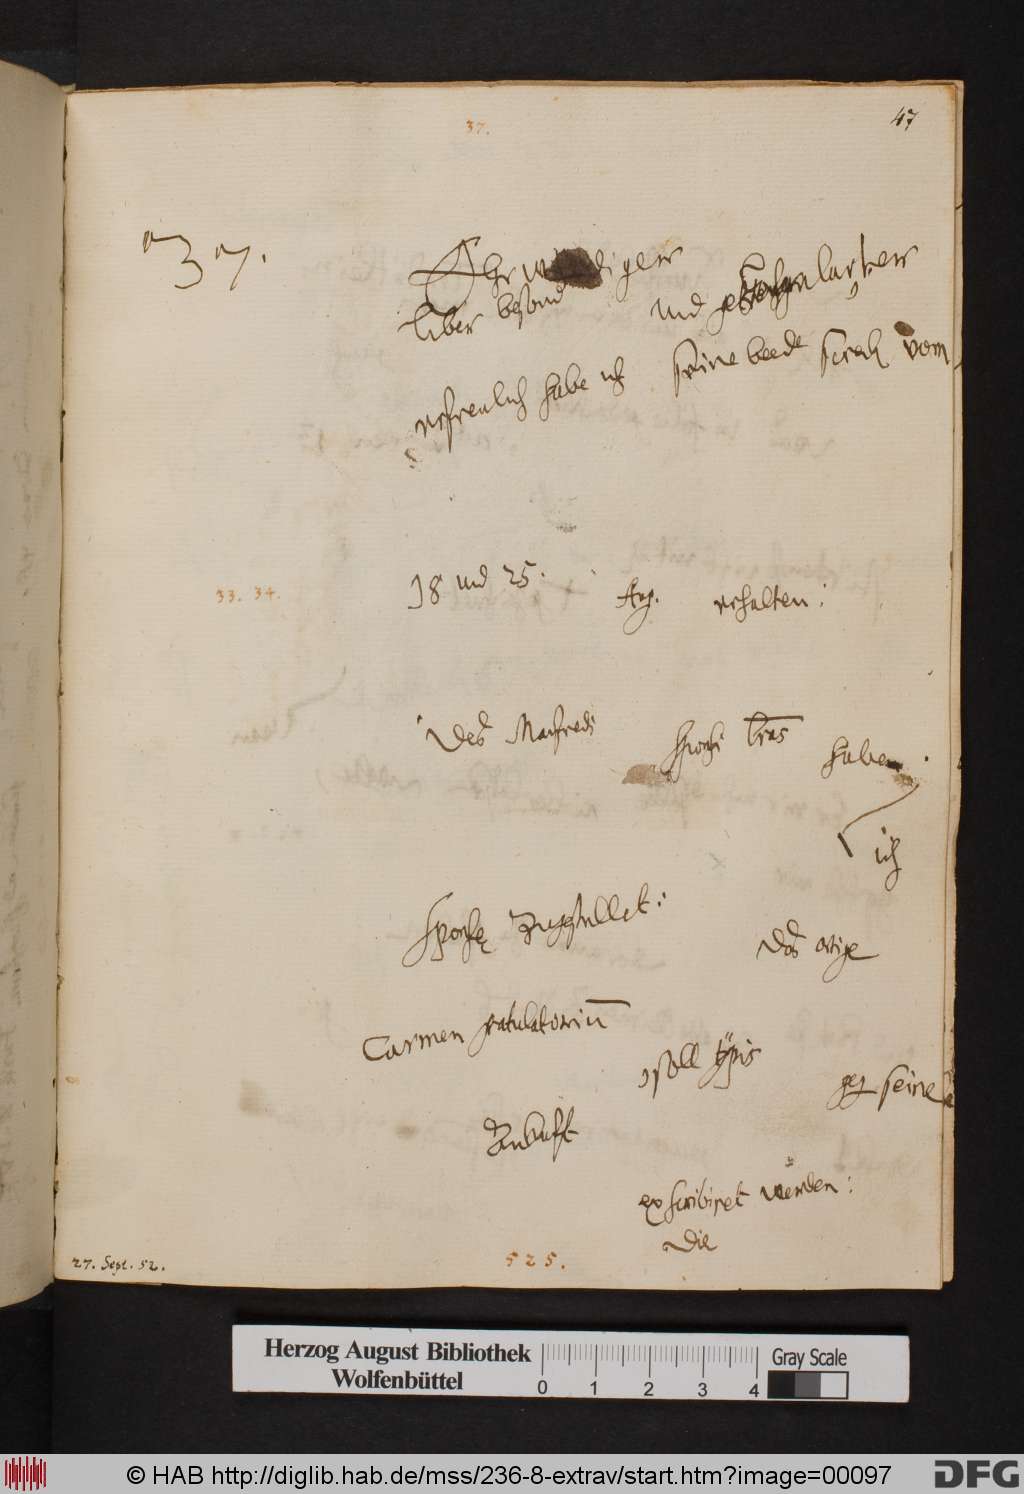 37.
47
37.
Ehrwürdiger
lieber besond und hochgelarter
erfreulich habe ich seine beede schreib vom
33. 34.
18 und 25. Aug. erhalten:
Des Manfredi haben
ich
zugestellet: das artige
Carmen gratulatoriū
soll typis
seine
Zukunft
exscribiret werden:
Die
27. Sept. 52.
525.
Herzog August Bibliothek
Wolfenbüttel
0 1 2 3 4
Gray Scale
© HAB http://diglib.hab.de/mss/236-8-extrav/start.htm?image=00097
DFG